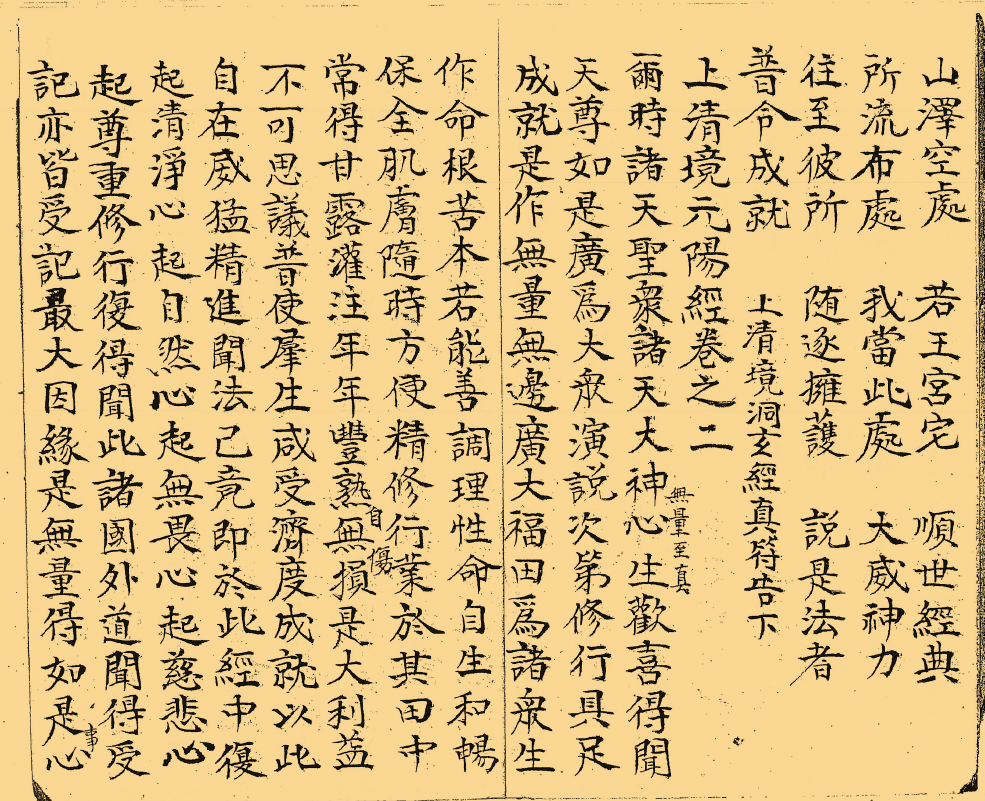 山澤空處　若王宮宅　順世經典
所流布處　我當此處　大威神力
往至彼所　随逐擁護　説是法者
普令成就
上清境洞玄經真符告下
上清境元陽經卷之二
無量至真
爾時諸天聖衆諸天大神心生歡喜得聞
天尊如是廣爲大衆演説次第修行具足
成就是作無量無邊廣大福田爲諸衆生
作命根苦本若能善調理性命自生和暢
保全肌膚隨時方便精修行業於其田中
自傷
常得甘露灌注年年豐熟無損是大利益
不可思議普使羣生咸受濟度成就以此
自在威猛精進聞法己竟即於此經中復
起清淨心起自然心起無畏心起慈悲心
起尊重修行復得聞此諸國外道聞得受
事
記亦皆受記最大因緣是無量得如是心